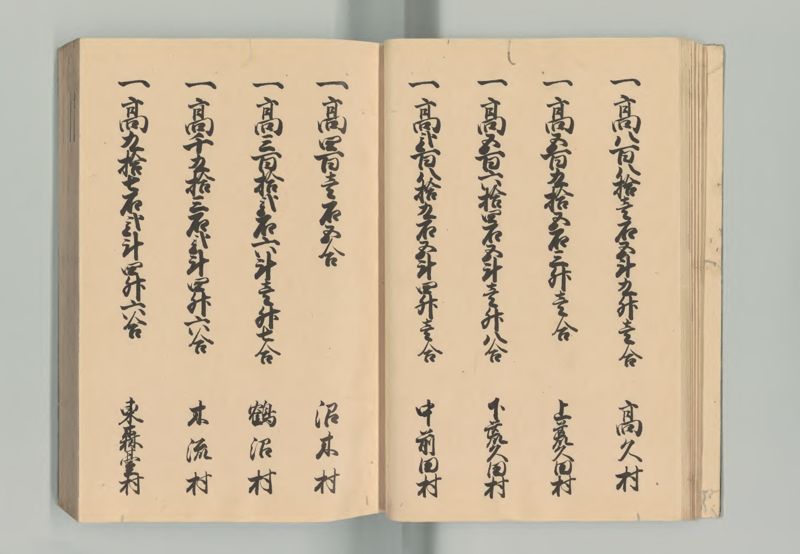 一高八百八拾壱石五斗九升壱合 高久村
一高五百九拾五石三升壱合 上荒久田村
一高五百六拾四石五斗壱升八合 下荒久田村
一高弐百八拾九石五斗四升壱合 中前田村
一高四百壱石五合 沼木村
一高三百拾弐石六斗壱升七合 鶴沼村
一高千九拾三石弐斗四升六合 木流村
一高九拾七石弐斗四升六合 東森臺村